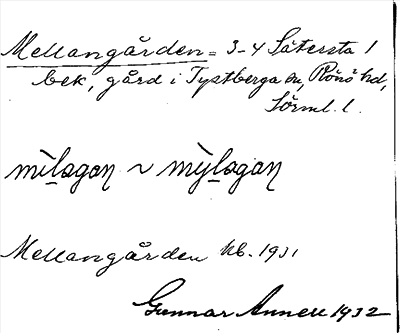 Mellangården = 3-4 Sätersta 1
bek, gård i Tystberga sn, Rönö hd,
Sörml. l.
mìlagaɳ ~ mỳlagaɳ
Mellangården hb. 1931
Gunnar Annell 1932